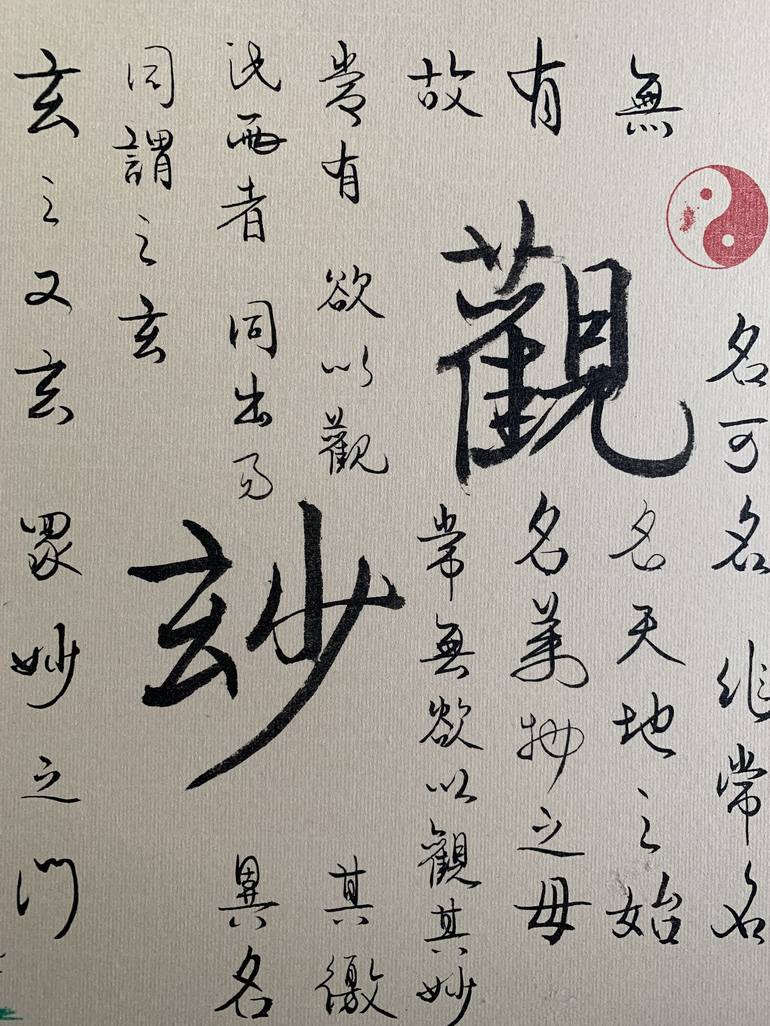 名可名非常名
無名天地之始
有名萬物之母
觀玅
故常無欲以觀其妙
常有欲以觀其徼
此兩者同出而異名
同謂之玄
玄之又玄眾妙之門